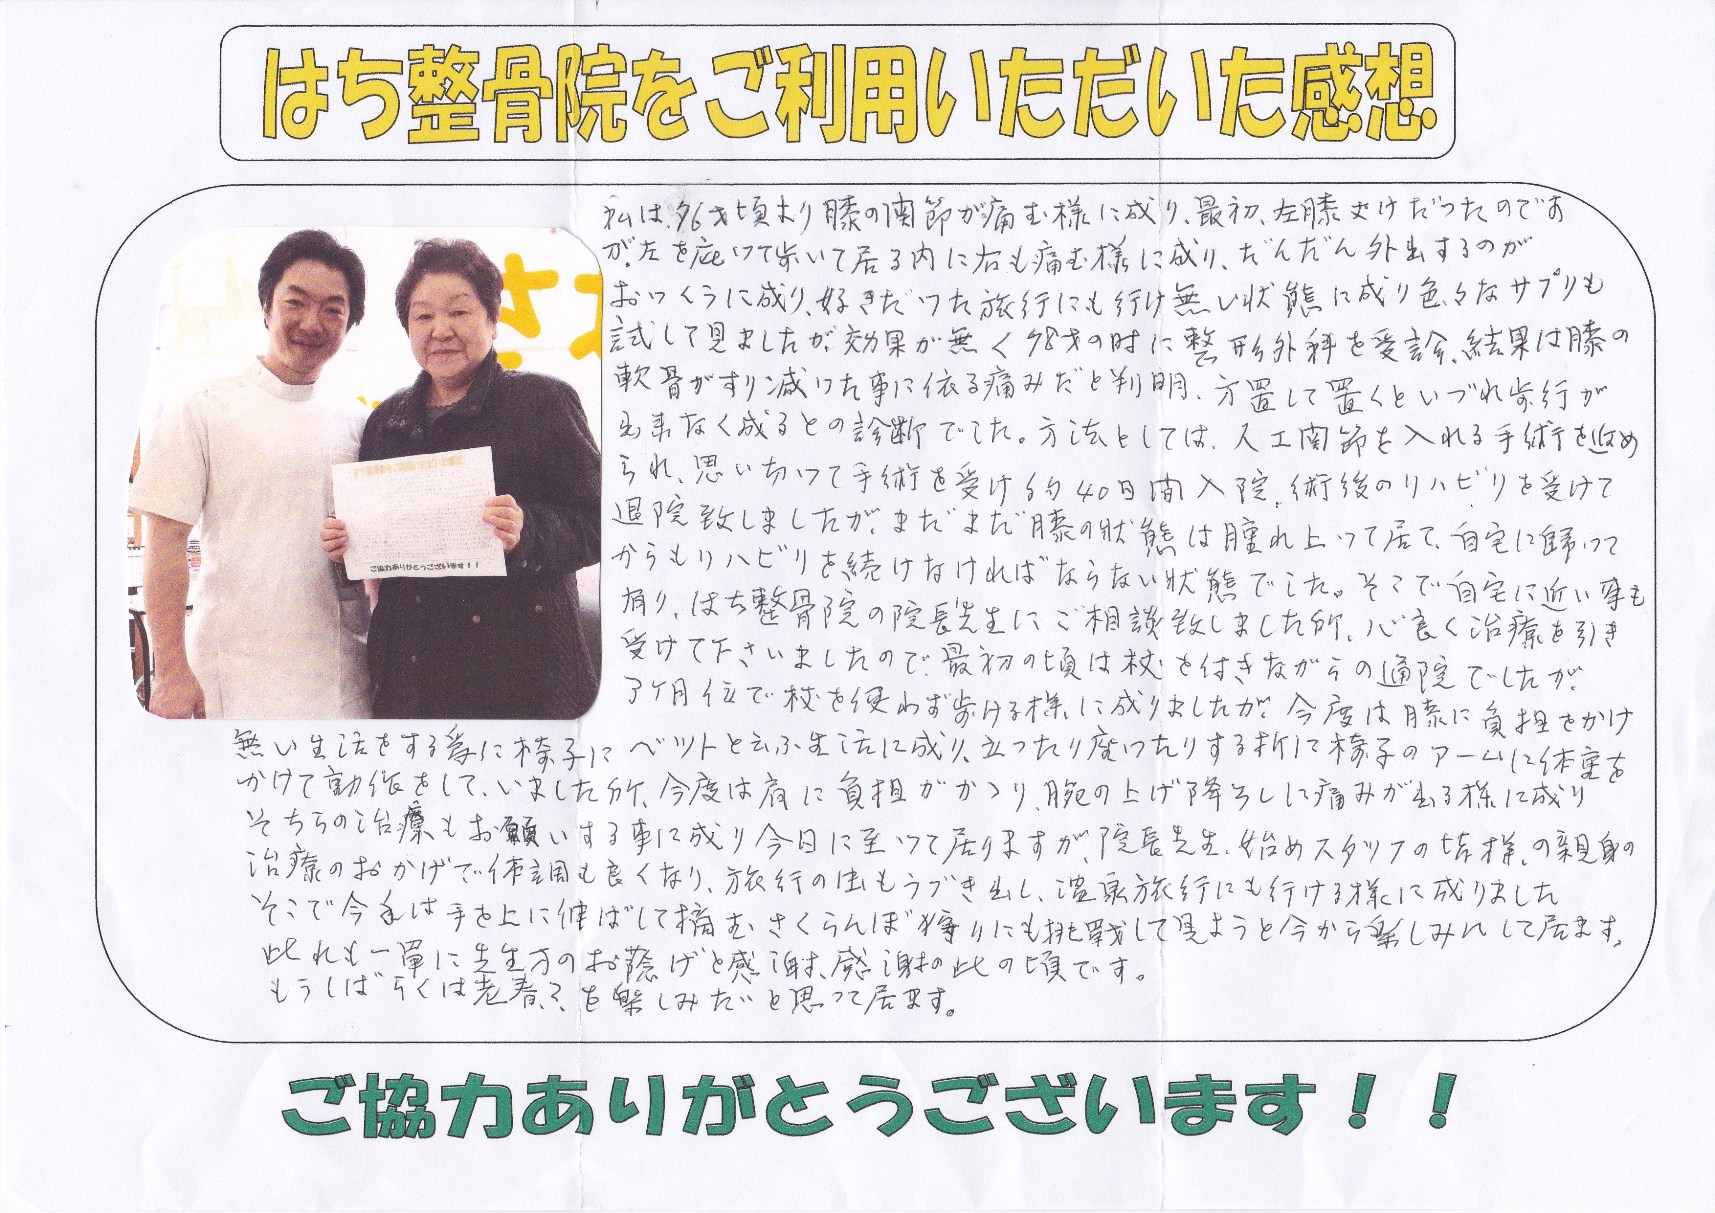 はち整骨院をご利用いただいた感想
私は、才頃より膝の関節が痛む様に成り、最初、左膝だけだったのです
が、左を庇って歩いて居る内に右も痛む様に成り、だんだん外出するのが
おっくうに成り、好きだった旅行にも行け無い状態に成り色々なサプリも
試して見ましたが、効果が無く才の時に整形外科を受診、結果は膝の
軟骨がすり減った事に依る痛みだと判明、方置して置くといづれ歩行が
出来なく成るとの診断でした。方法としては、人工関節を入れる手術を進め
られ、思い切って手術を受け約40日間入院、術後のリハビリを受けて
退院致しましたが、まだまだ膝の状態は腫れ上って居て、自宅に帰って
からもリハビリを続けなければならない状態でした。そこで自宅に近い事も
有り、はち整骨院の院長先生にご相談致しました所、心良く治療を引き
受けて下さいましたので、最初の頃は杖を付きながらの通院でしたが、
ヶ月位で杖を使わず歩ける様に成りましたが、今度は膝に負担をかけ
無い生活をする為に椅子にベットと云ふ生活に成り、立ったり座ったりする折に椅子のアームに体重を
かけて動作をして、いました所、今度は肩に負担がかかり、腕の上げ降ろしに痛みが出る様に成り
そちらの治療もお願いする事に成り今日に至って居りますが、院長先生、始めスタッフの皆様、の親身の
治療のおかげで体調も良くなり、旅行の虫もうづき出し、温泉旅行にも行ける様に成りました
そこで今年は手を上に伸ばして摘む、さくらんぼ狩りにも挑戦して見ようと今から楽しみにして居ます。
此れも一重に先生方のお蔭げと感謝、感謝の此の頃です。
もうしばらくは老春？を楽しみたいと思って居ます。
ご協力ありがとうございます！！